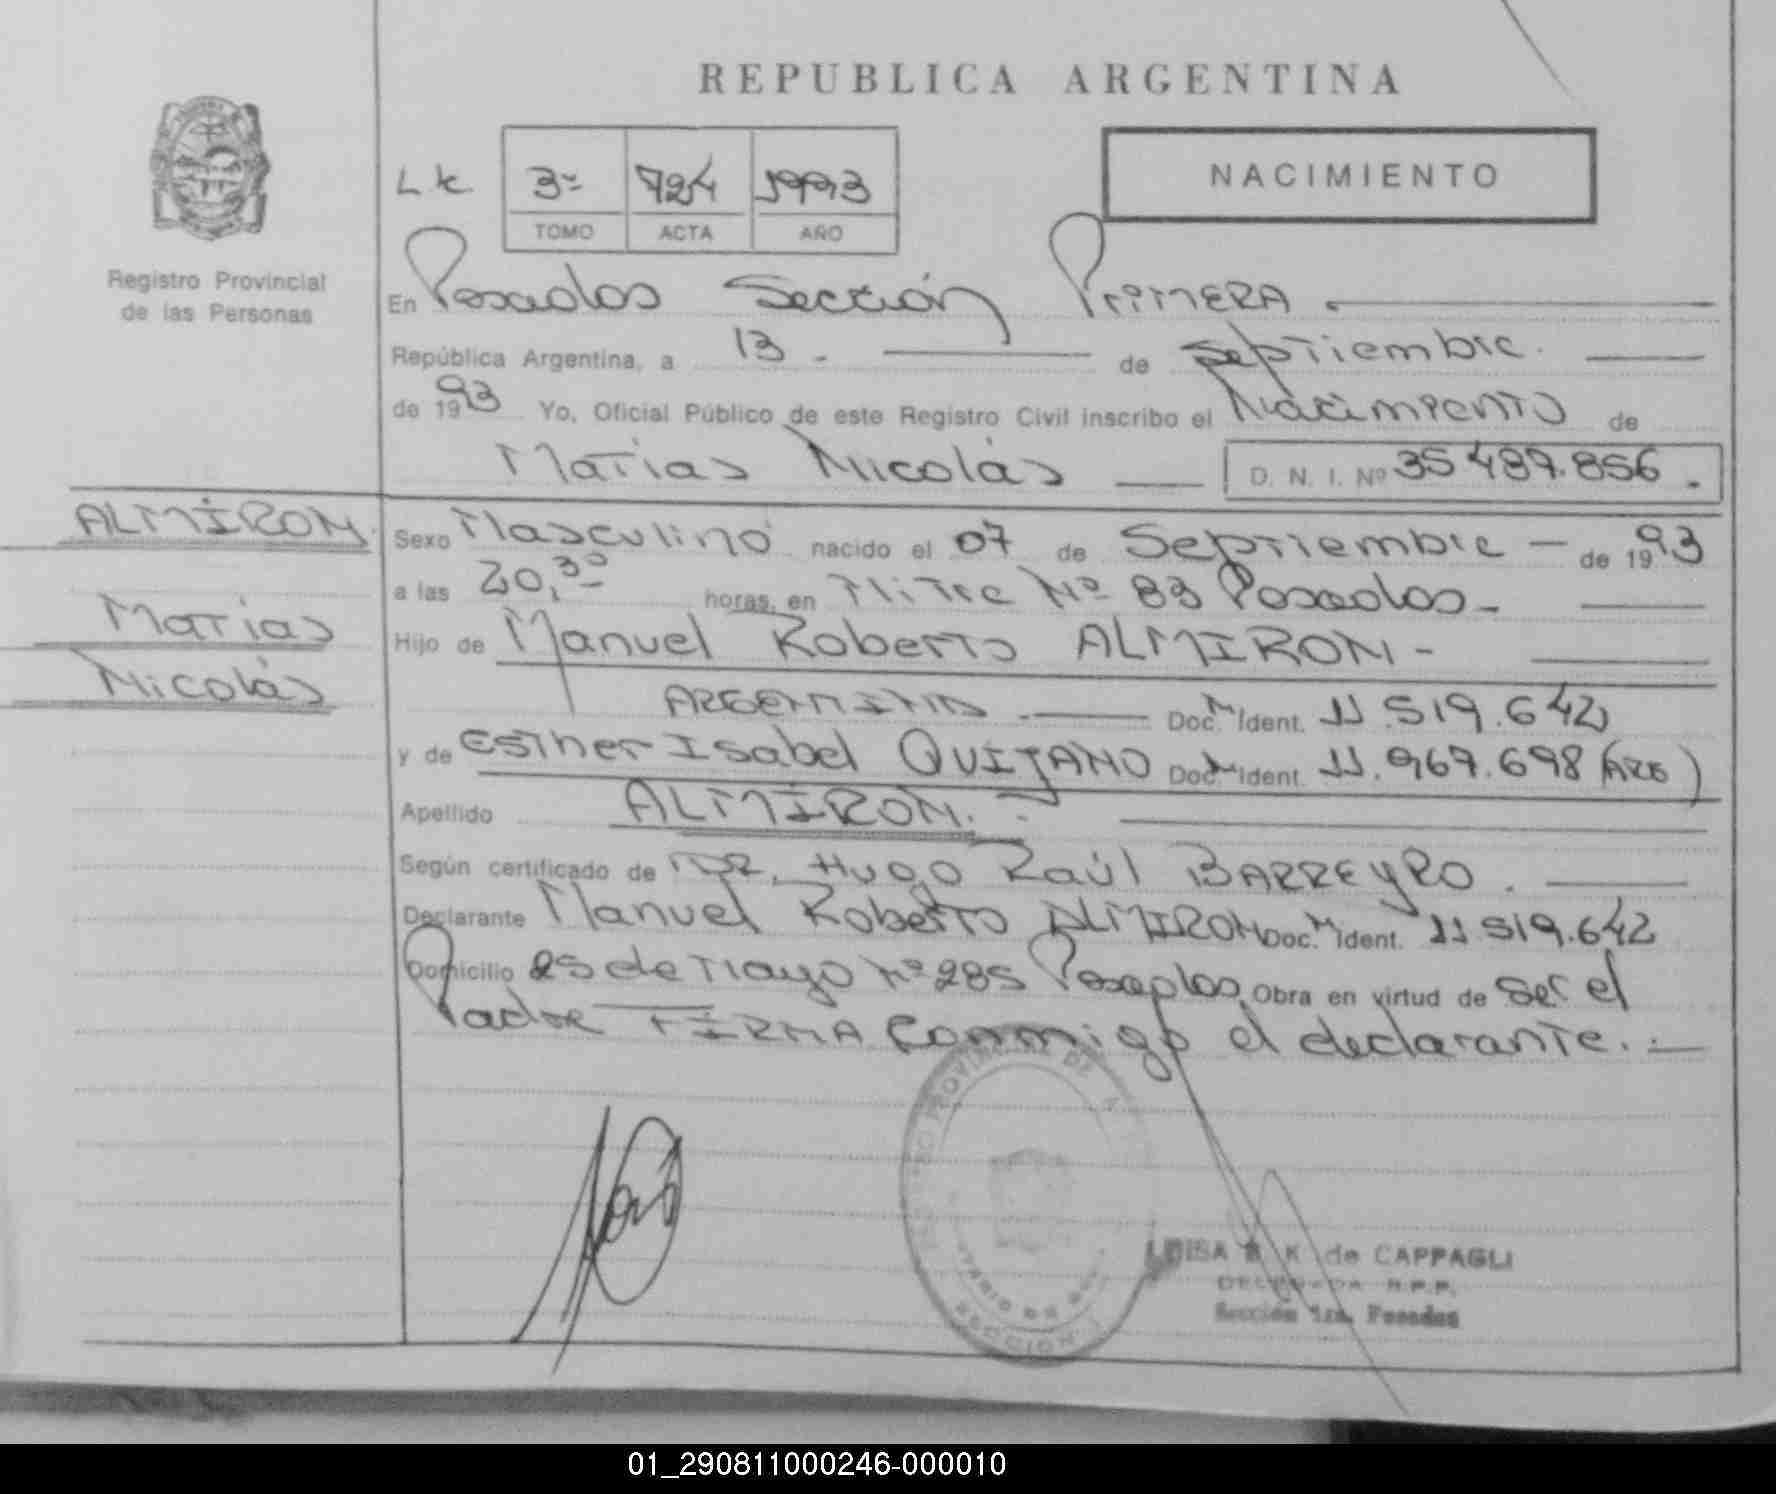 REPUBLICA ARGENTINA
NACIMIENTO
3º 724 1993
TOMO ACTA AÑO
Registro Provincial
de las Personas
En Posadas Sección PriMERA.
República Argentina, a 13. de Septiembre.
de 1993 Yo, Oficial Público de este Registro Civil inscribo el Nacimiento de
Matías Nicolás D. N. I. Nº 35 489.856.
ALMIRON.
Matías
Nicolás
Sexo Masculino nacido el 07 de Septiembre de 1993
a las 20,30 horas, en Mitre Nº 83 Posadas.
Hijo de Manuel Roberto ALMIRON
ARGENTINO Doc. M Ident. 11.519.642
y de Esther Isabel QUIJANO Doc. M Ident. 11.967.698 (ARG)
Apellido ALMIRON.
Según certificado de DR. Hugo Raúl BARREYRO.
Declarante Manuel Roberto ALMIRON Doc. M Ident. 11.519.642
Domicilio 25 de Mayo Nº 285 Posadas, Obra en virtud de ser el
Padre FIRMA conmigo el declarante.
LUISA B. K de CAPPAGLI
DELEGADA R.P.P.
Sección 1ra. Posadas
01_290811000246-000010